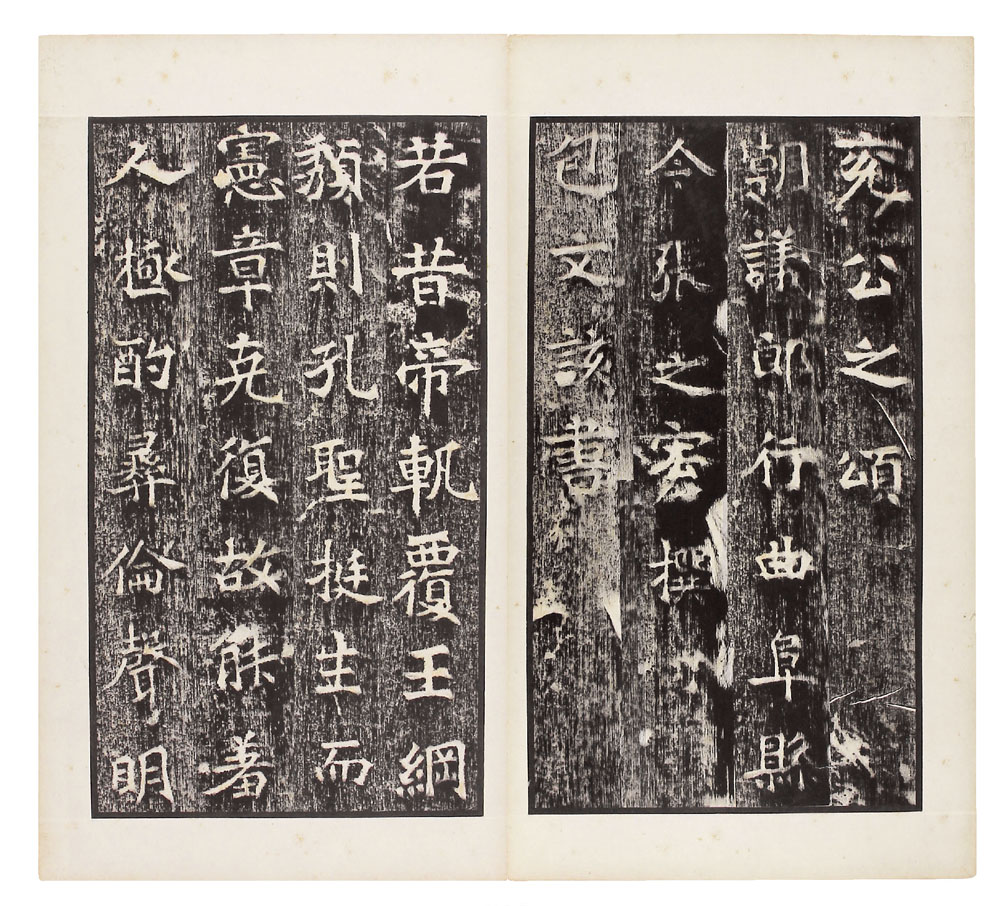 兗公之頌
朝議郎行曲阜縣
令張之宏撰
包文該書
若昔帝軌覆王綱
頹則孔聖挺生而
憲章克復故能蓄
人極酌彝倫聲明